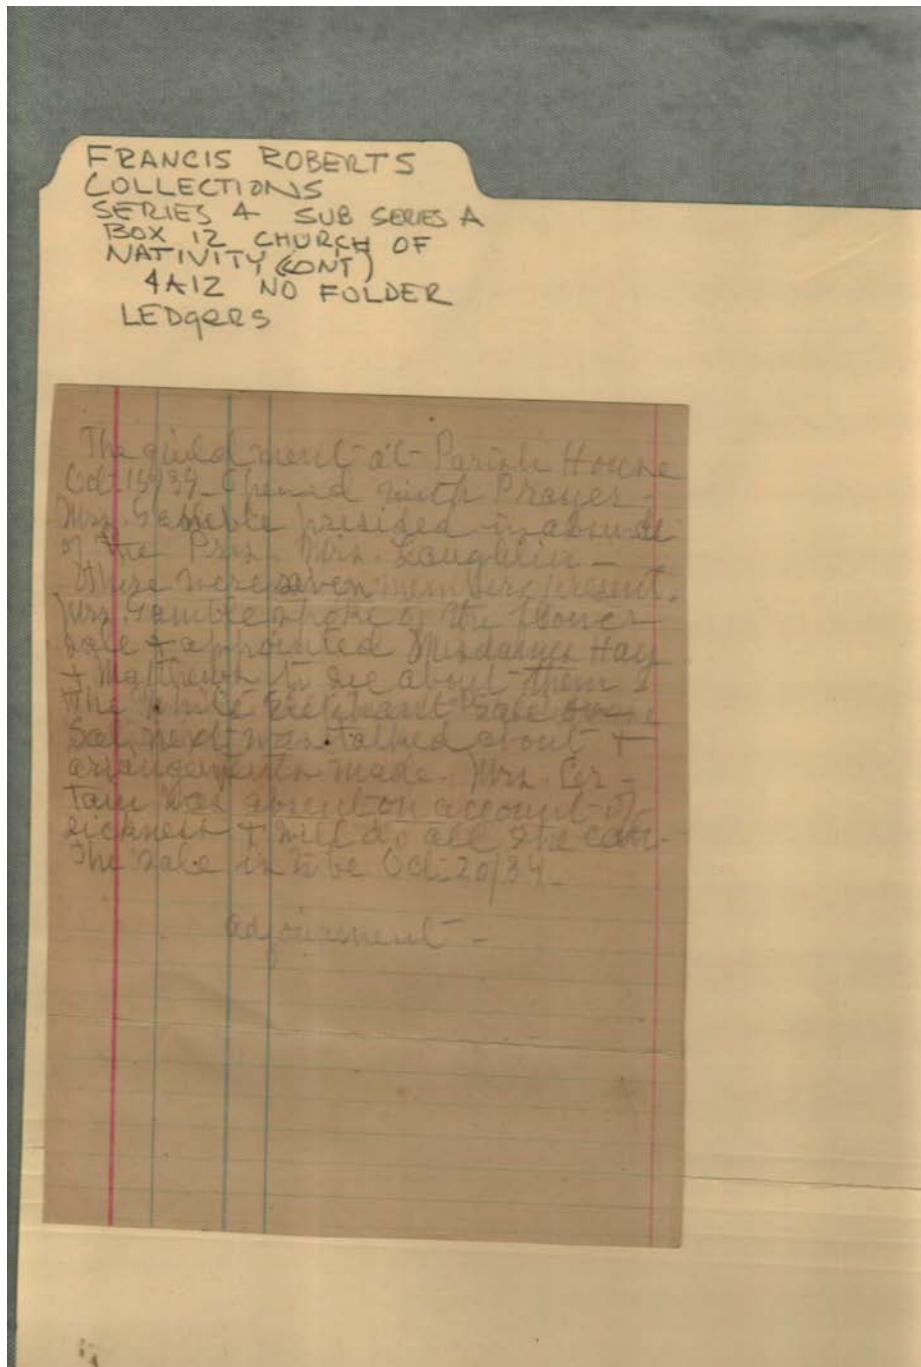 FRANCIS ROBERTS
COLLECTIONS
SERIES 4 SUB SERIES A
BOX 12 CHURCH OF
NATIVITY (CONT)
4A12 NO FOLDER
LEDgERS
The guild ment at Parish House
Oct 15/34 Opened with Prayer -
Mrs. Gamble presided in absence
of the Pres. Mrs. Laughlin -
there were seven members present.
Mrs. Gamble spoke of the flower
sale + appointed Mesdames Hay
+ to see about them
The White Elephant Sale
Sat. next was talked about +
arrangements made. Mrs. Cer-
tain was absent on account of
sickness + will do all she can.
The sale is to be Oct. 20/34.
adjournment -